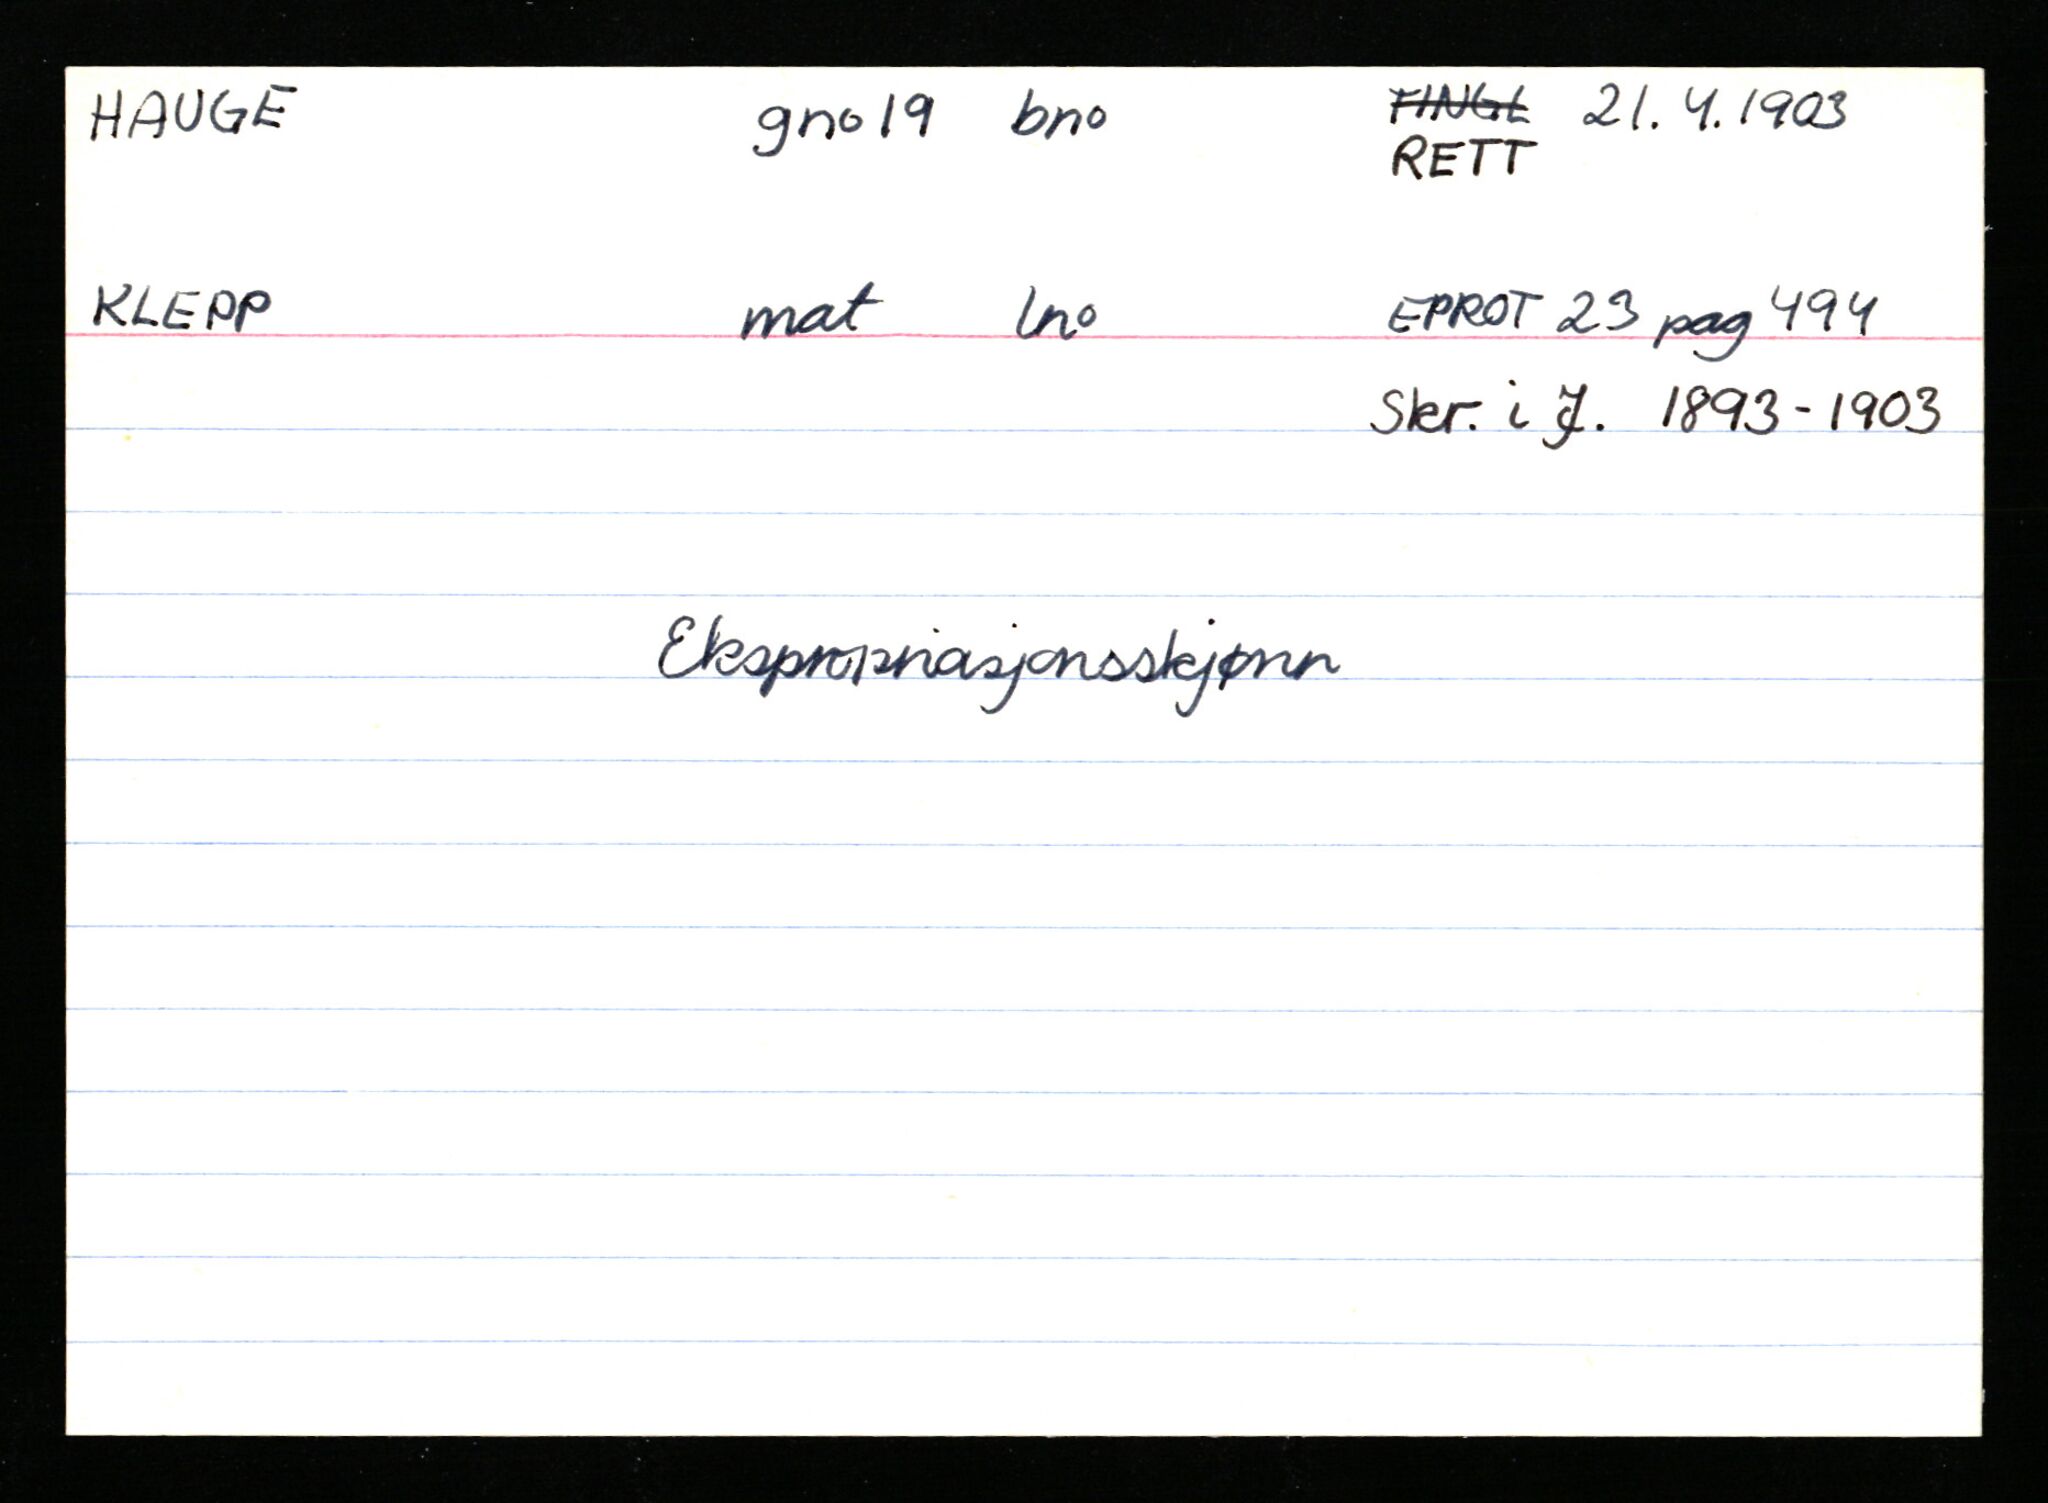 HAUGE gno 19 bno TINGL 21.4.1903
RETT
KLEPP mat lno EPROT 23 pag 494
Skr. i J. 1893-1903
Ekspropriasjonsskjønn